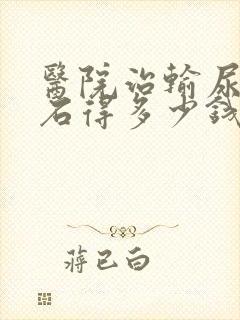 醫院治輸尿
石得多少錢
蔣已白